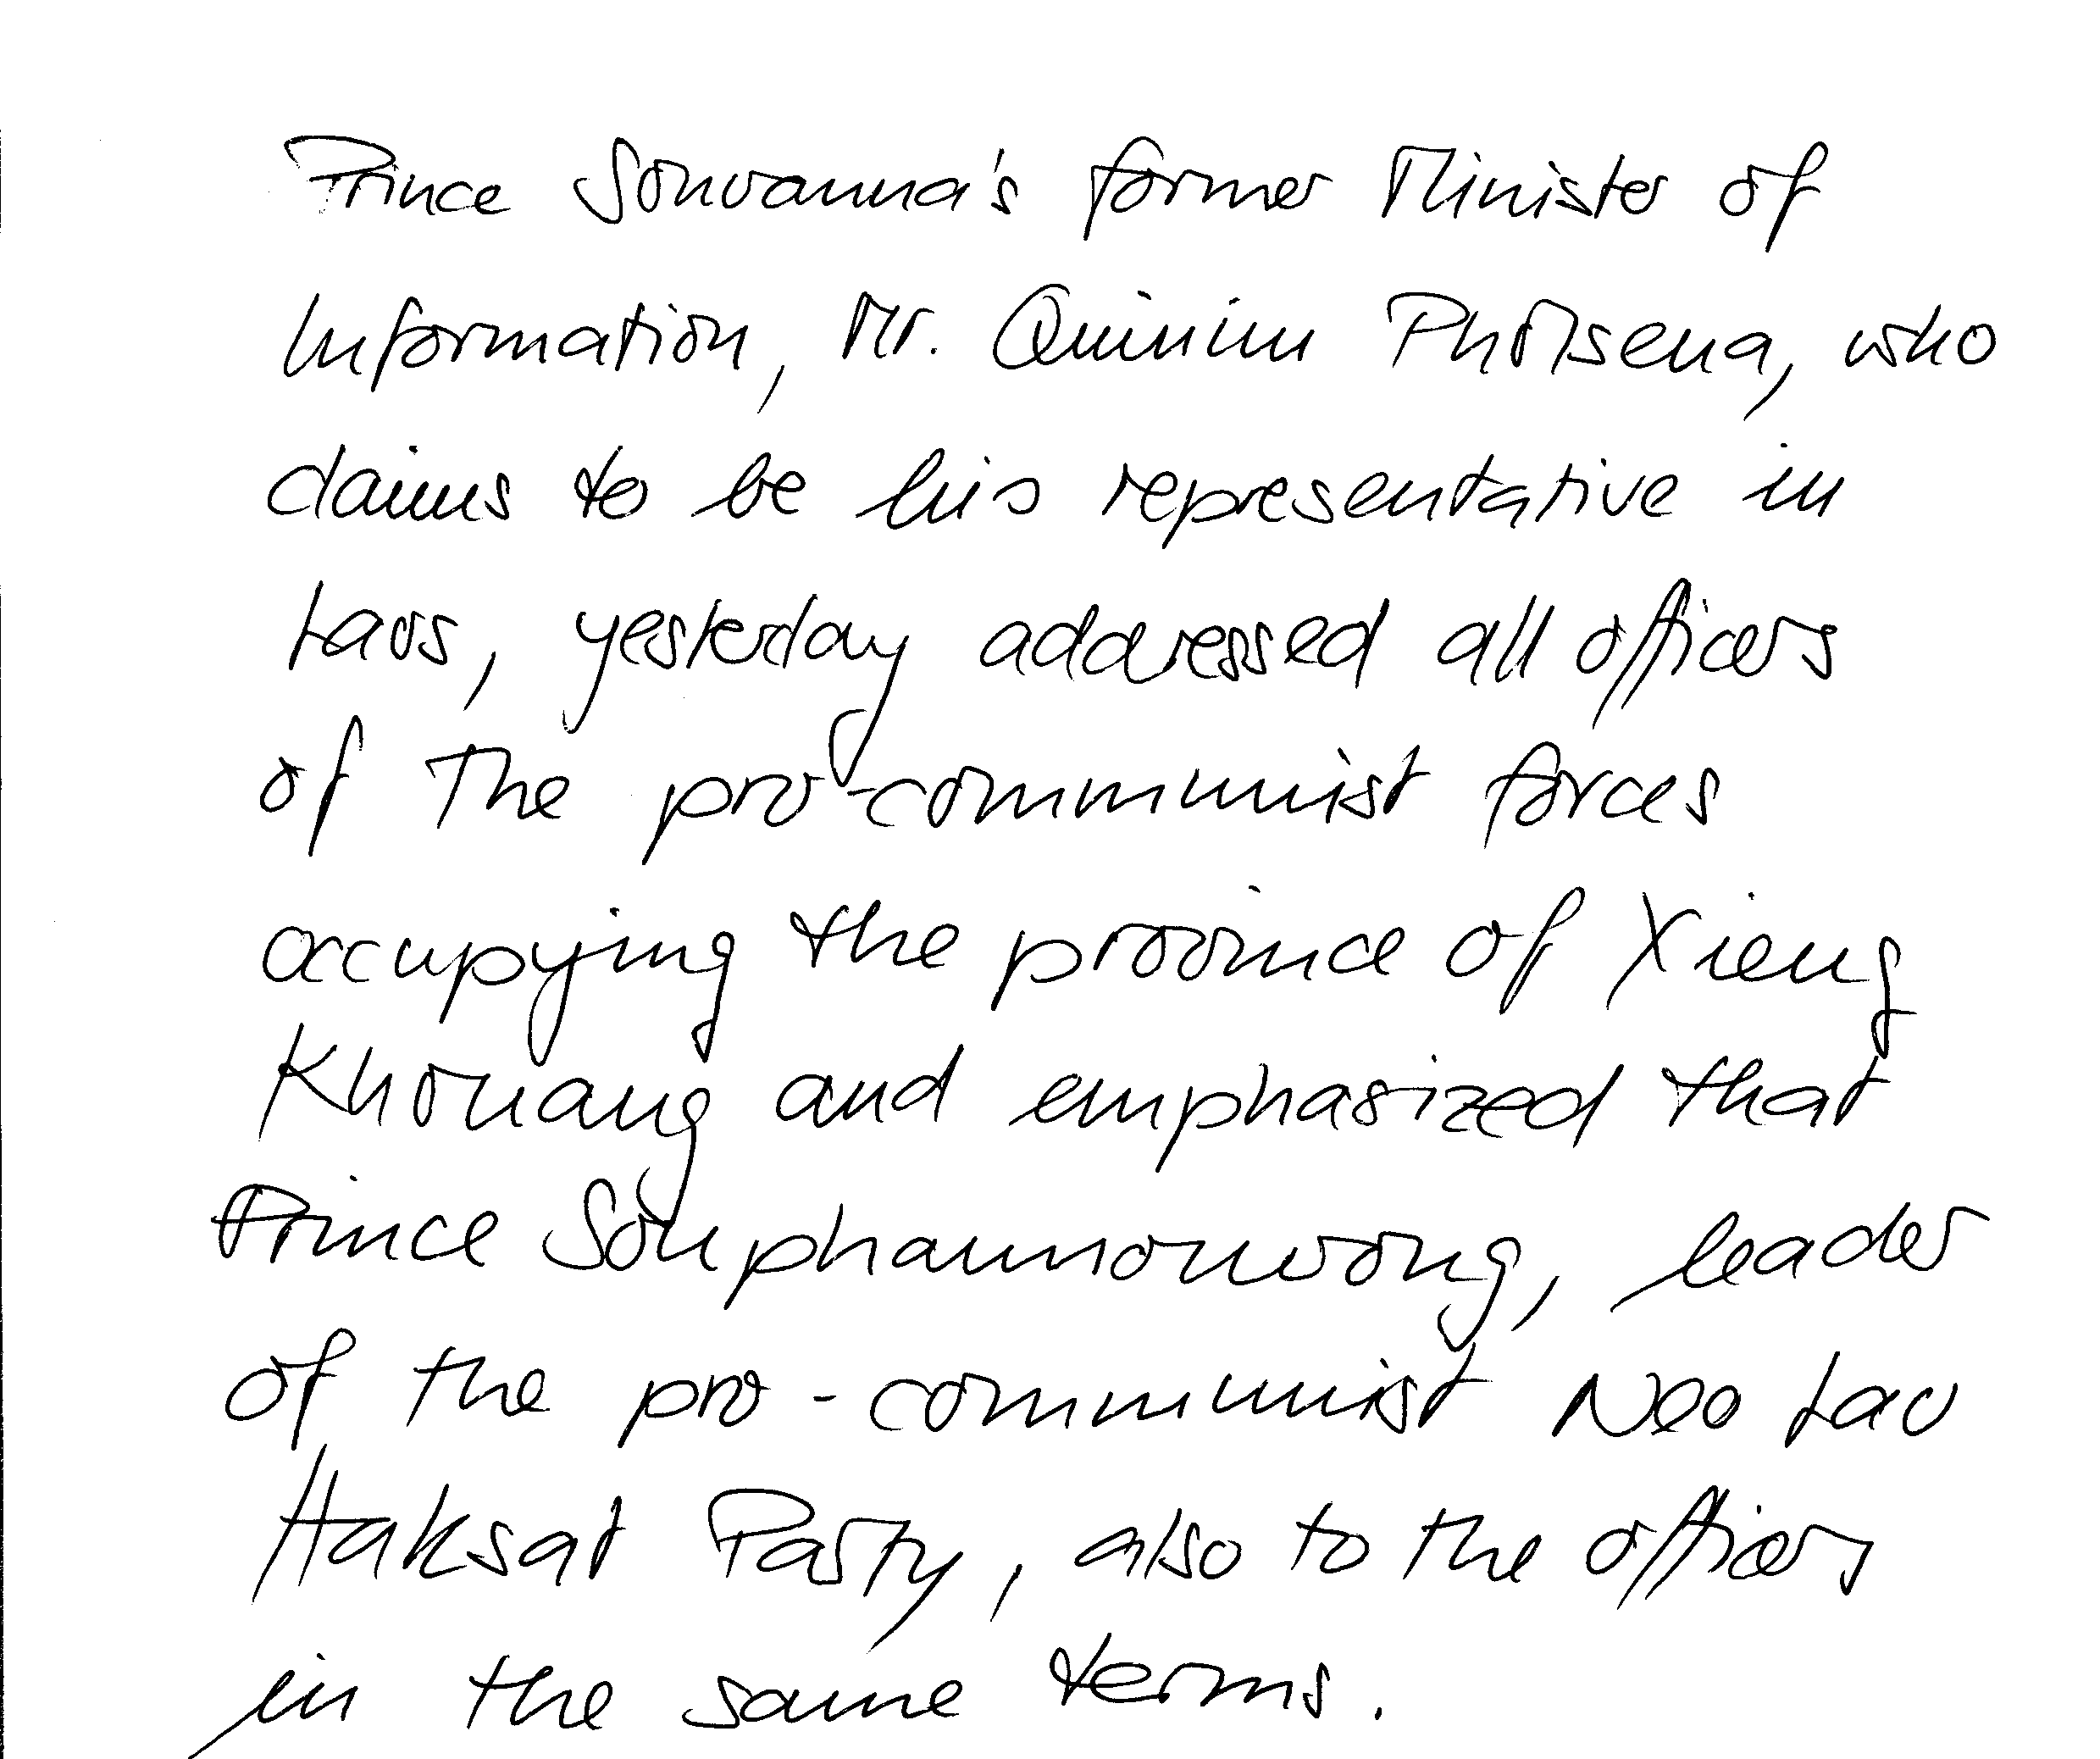 Prince Souvanna's former Minister of
Information, Mr. Quinim Pholsena, who
claims to be his representative in
Laos, yesterday addressed all officers
of the pro-communist forces
occupying the province of Xieng
Khouang and emphasized that
Prince Souphannouvong, leader
of the pro-communist Neo Lao
Haksat Party, also to the officers
in the same terms.